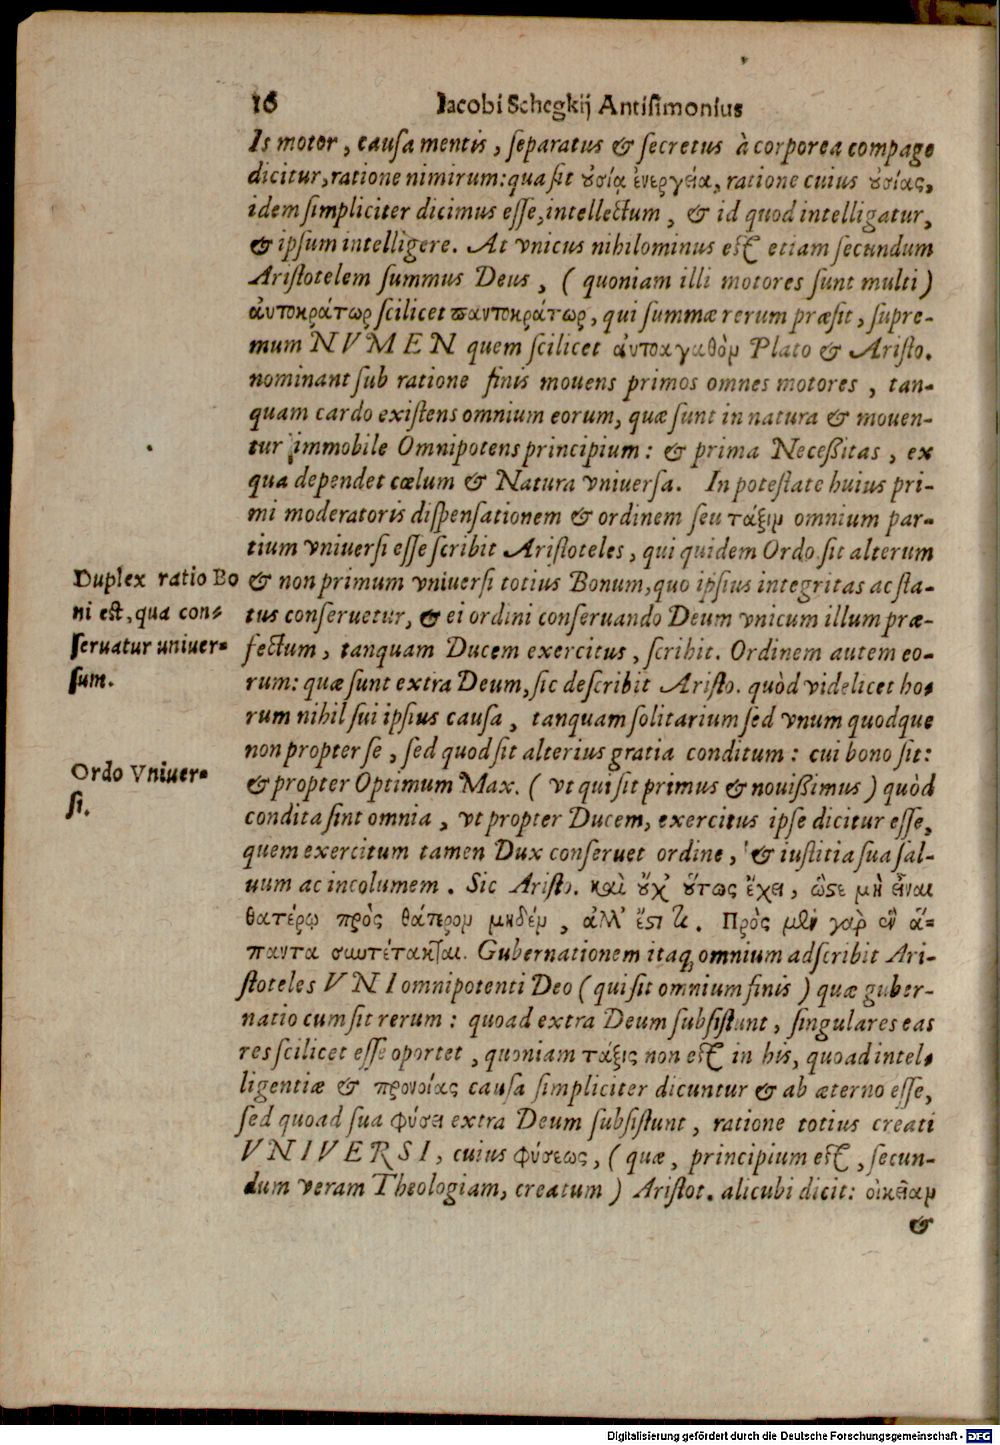 16 Iacobi Schegkij Antisimonius
Is motor, causa mentis, ſeparatus & ſecretus à corporea compage
dicitur, ratione nimirum: qua ſit ȣ̓σίᾳ ἐνεργείᾳ, ratione cuius ȣ̓σίας,
idem ſimpliciter dicimus eſſe, intellectum, & id quod intelligatur,
& ipſum intelligere. At vnicus nihilominus eſt etiam ſecundum
Ariſtotelem ſummus Deus, (quoniam illi motores ſunt multi)
ἀυτοκράτωρ ſcilicet παντοκράτωρ, qui ſummæ rerum præſit, ſupre-
mum NVMEN quem ſcilicet ἀυτοαγαθὸν Plato & Ariſto.
nominant ſub ratione finis mouens primos omnes motores, tan-
quam cardo exiſtens omnium eorum, quæ ſunt in natura & mouen-
tur immobile Omnipotens principium: & prima Neceßitas, ex
qua dependet cœlum & Natura vniuerſa. In poteſtate huius pri-
mi moderatoris diſpenſationem & ordinem ſeu τάξιν omnium par-
tium vniuerſi eſſe ſcribit Ariſtoteles, qui quidem Ordo ſit alterum
Duplex ratio Bo
ni est, qua con-
ſeruatur uniuer-
ſum.
& non primum vniuerſi totius Bonum, quo ipſius integritas ac ſta-
tus conſeruetur, & ei ordini conſeruando Deum vnicum illum præ-
fectum, tanquam Ducem exercitus, ſcribit. Ordinem autem eo-
rum: quæ ſunt extra Deum, ſic deſcribit Ariſto. quòd videlicet ho-
rum nihil ſui ipſius cauſa, tanquam ſolitarium ſed vnum quodque
non propter ſe, ſed quod ſit alterius gratia conditum: cui bono ſit:
Ordo Vniuer-
ſi.
& propter Optimum Max. (vt qui ſit primus & nouißimus) quòd
condita ſint omnia, vt propter Ducem, exercitus ipſe dicitur eſſe,
quem exercitum tamen Dux conſeruet ordine, & iuſtitia ſua ſal-
uum ac incolumem. Sic Ariſto. καὶ ȣ̓χ’ ȣ̔́τως ἔχει, ὥϛε μὴ εἶναι
θατέρῳ πρὸς θάτερον μηδὲν, ἀλλ’ ἔϛι τι. Πρὸς μὲν γὰρ ἓν ἅ-
παντα συντέτακται. Gubernationem itaq; omnium adſcribit Ari-
ſtoteles VNI omnipotenti Deo (qui ſit omnium finis) quæ guber-
natio cum ſit rerum: quoad extra Deum ſubſiſtunt, ſingulares eas
res ſcilicet eſſe oportet, quoniam τάξις non eſt in his, quoad intel-
ligentiæ & προνοίας cauſa ſimpliciter dicuntur & ab æterno eſſe,
ſed quoad ſua φύσει extra Deum ſubſiſtunt, ratione totius creati
VNIVERSI, cuius φύσεως, (quæ, principium eſt, ſecun-
dum veram Theologiam, creatum) Ariſtot. alicubi dicit: οἰκείαν
&
Digitalisierung gefördert durch die Deutsche Forschungsgemeinschaft - DFG